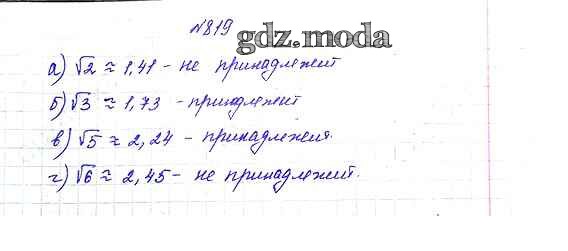 №819
gdz.moda
а) √2 ≈ 1,41 - не принадлежит
б) √3 ≈ 1,73 - принадлежит
в) √5 ≈ 2,24 - принадлежит.
г) √6 ≈ 2,45 - не принадлежит.